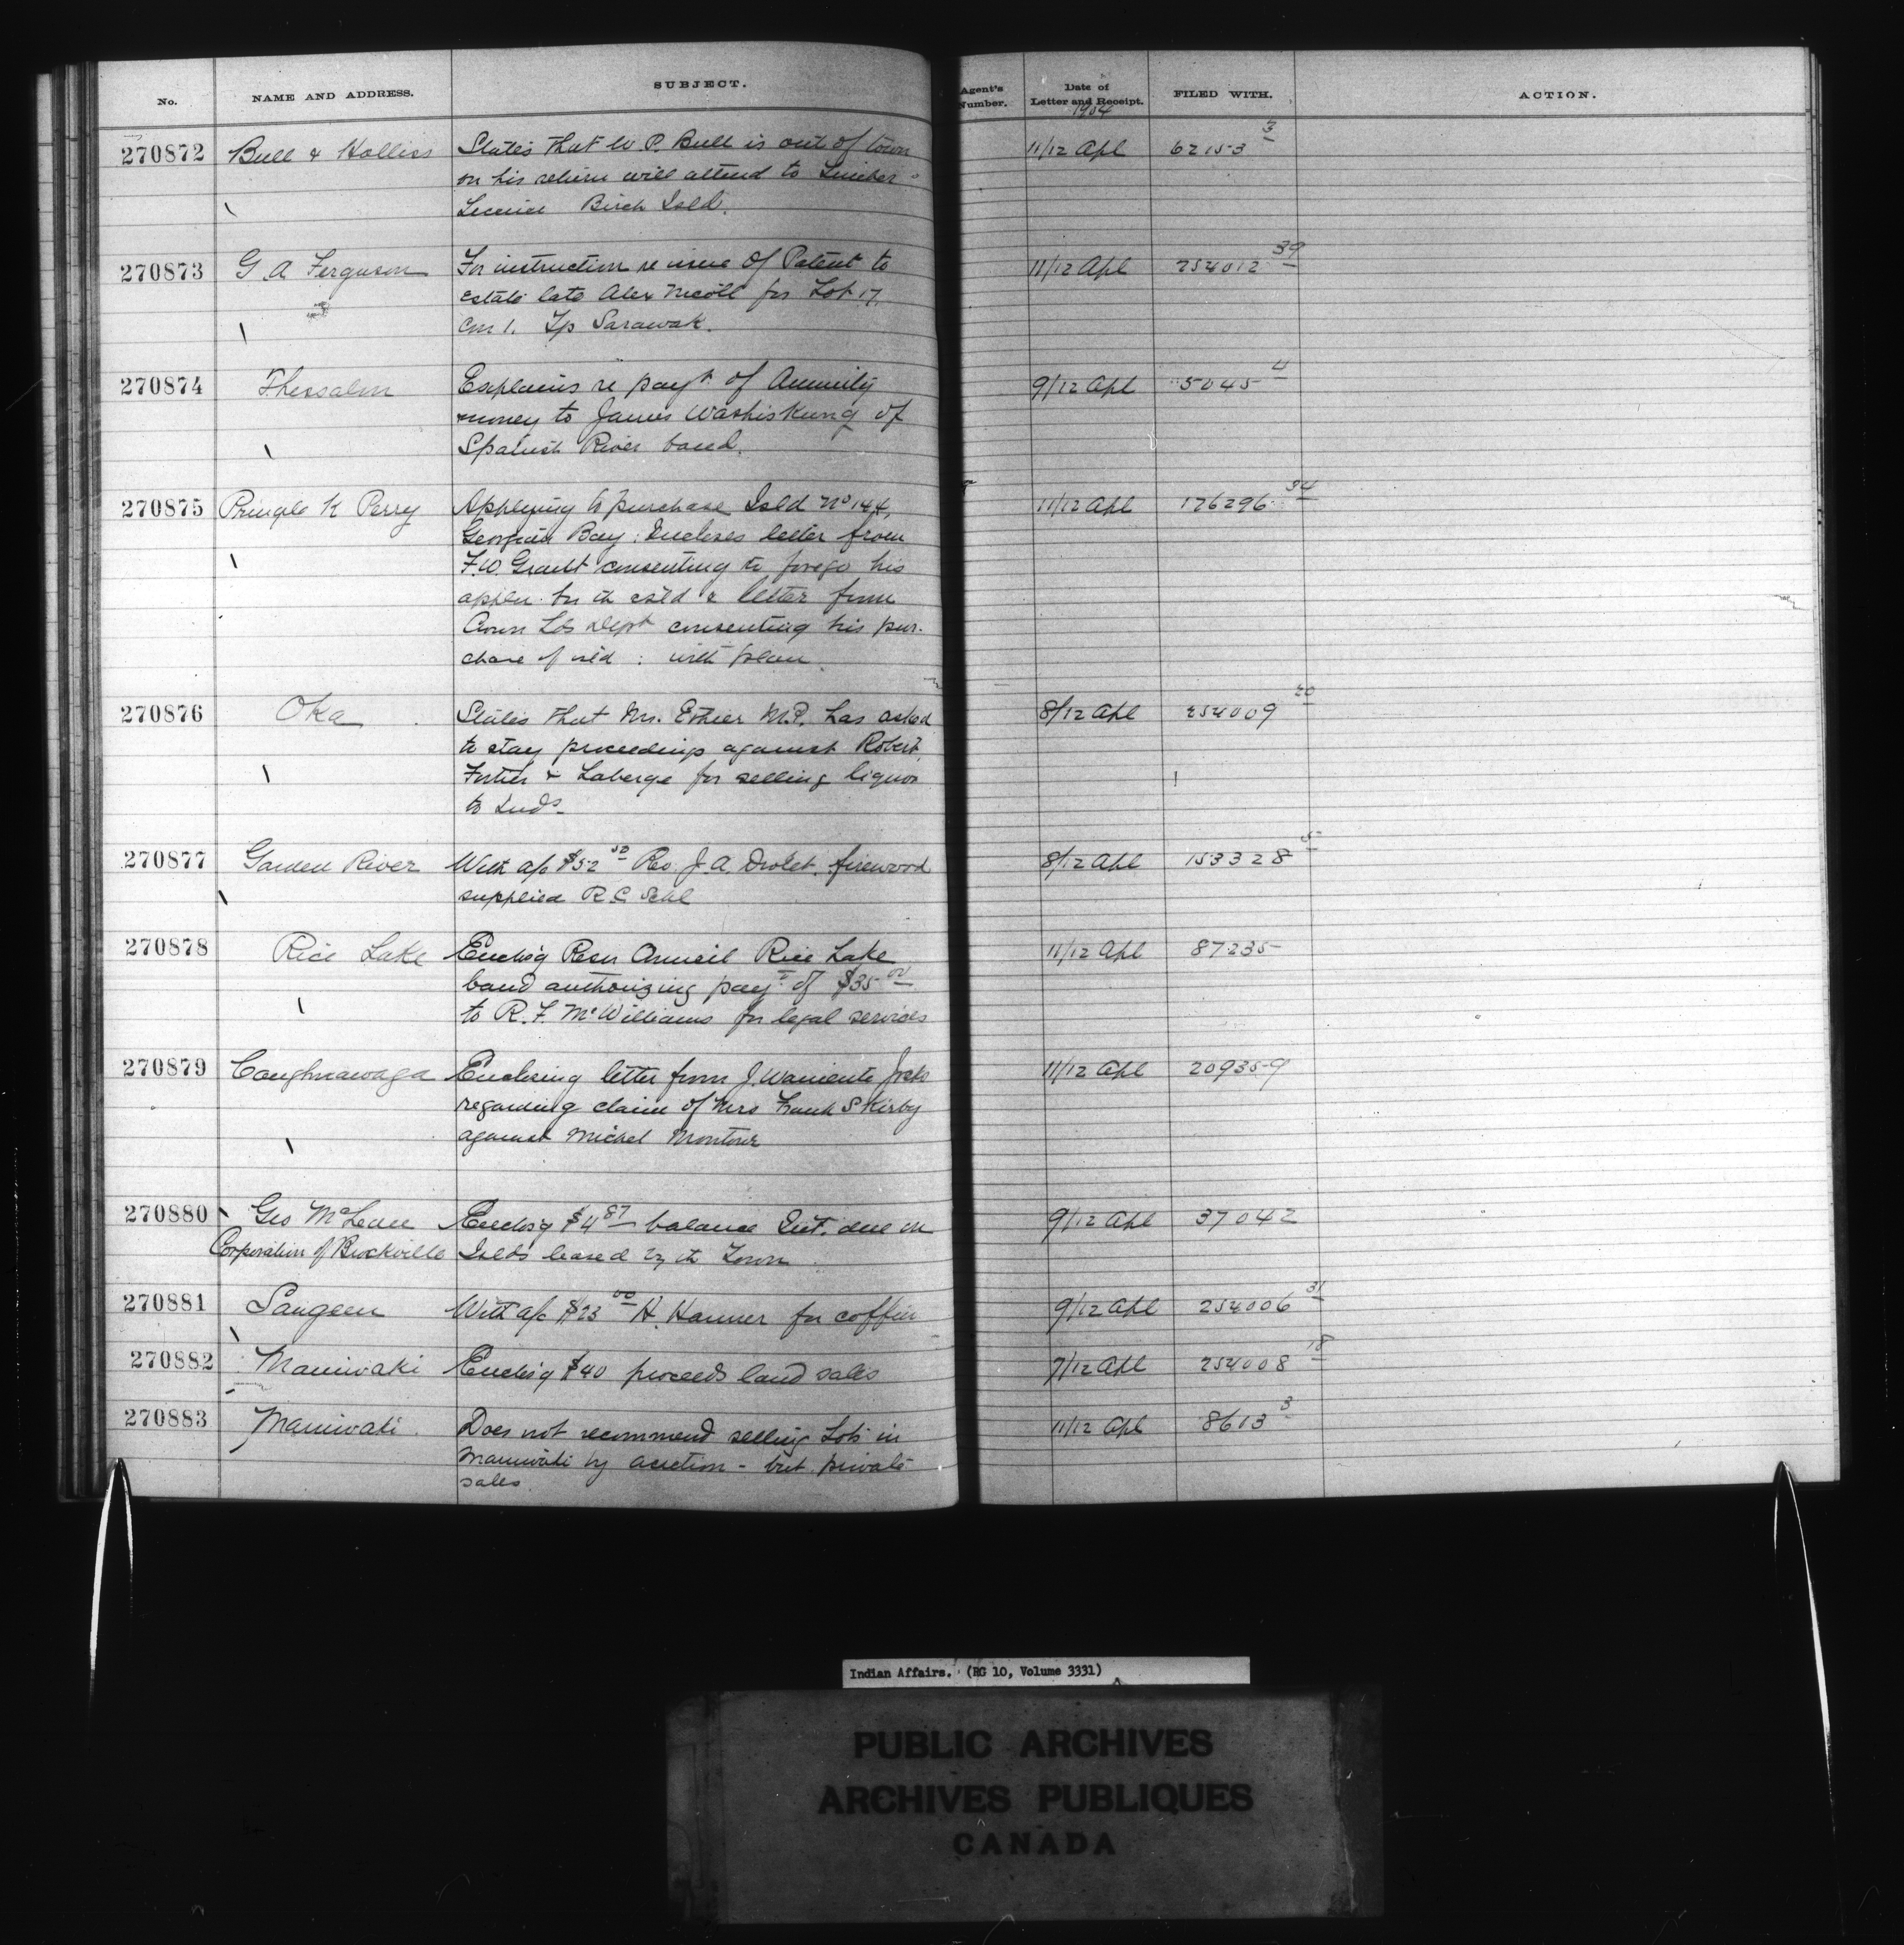 No. NAME AND ADDRESS. SUBJECT. Agent's Number. Date of Letter and Receipt. FILED WITH. ACTION.
1904
270872 Bull & Holliss States that W. P. Bull is out of town 11/12 Apl 62153 3
on his return will attend to Timber
License Birch Isld.
270873 G A Ferguson For instruction re issue of Patent to 11/12 Apl 254012 39
estate late Alex Nicoll for Lot 17
Con 1. Tp Sarawak.
270874 Thessalon Explains re payt of Annuity 9/12 Apl 5045 4
money to James Washiskung of
Spanish River band.
270875 Pringle K Perry Applying to purchase Isld No 144, 11/12 Apl 176296 34
Georgian Bay: Encloses letter from
F. W. Grant consenting to forego his
appln. for th isld & letter from
Crown Lds Dept consenting his pur-
chase of isld : with plan.
270876 Oka States that Mr. Ethier M.P. has asked 8/12 Apl 254009 20
to stay proceedings against Robert,
Fortier & Laberge for selling liquor
to Inds-
270877 Garden River With a/c $52 50 Rev. J. A. Drolet. firewood 8/12 Apl 153328 5
supplied R.C. Schl
270878 Rice Lake Enclos'g Resn Council Rice Lake 11/12 Apl 87235
band authorizing payt of $35 00
to R. F. McWilliams for legal services
270879 Caughnawaga Enclosing letter from J. Waniente Jocks 11/12 Apl 209359
regarding claim of Mrs Frank S Kirby
against Michel Montour
270880 Geo McLean Enclos'g $4 87 balance Int. due on 9/12 Apl 37042
Corporation of Brockville Islds leased by th Town
270881 Saugeen With a/c $23 00 H. Harmer for coffin 9/12 Apl 254006 31
270882 Maniwaki Enclos'g $40 proceeds land sales 7/12 Apl 254008 18
270883 Maniwaki Does not recommend selling Lots in 11/12 Apl 8613 3
Maniwaki by auction - but private
sales.
Indian Affairs. (RG 10, Volume 3331)
PUBLIC ARCHIVES
ARCHIVES PUBLIQUES
CANADA